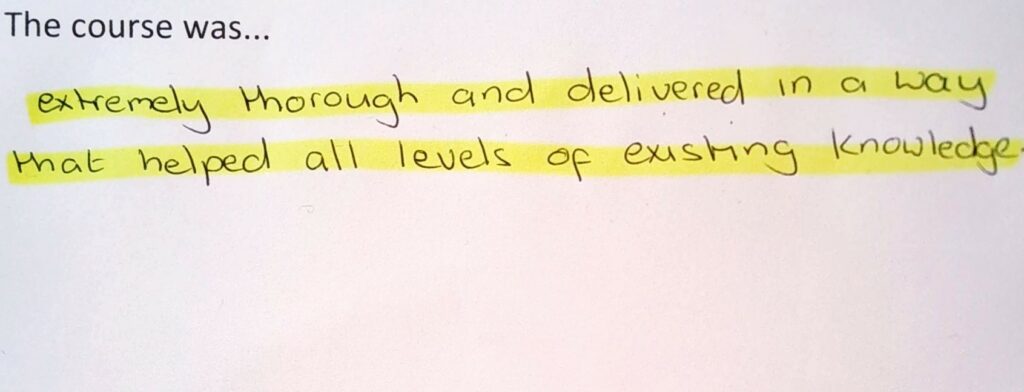 The course was...
extremely thorough and delivered in a way
that helped all levels of existing knowledge.